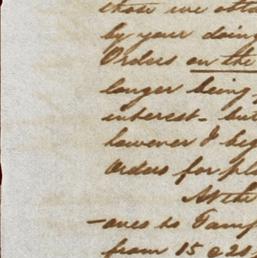 those we
by your doing
Orders on the
longer being
interest - but
however I beg
Orders for
At the
-ances to
from 15 @ 20